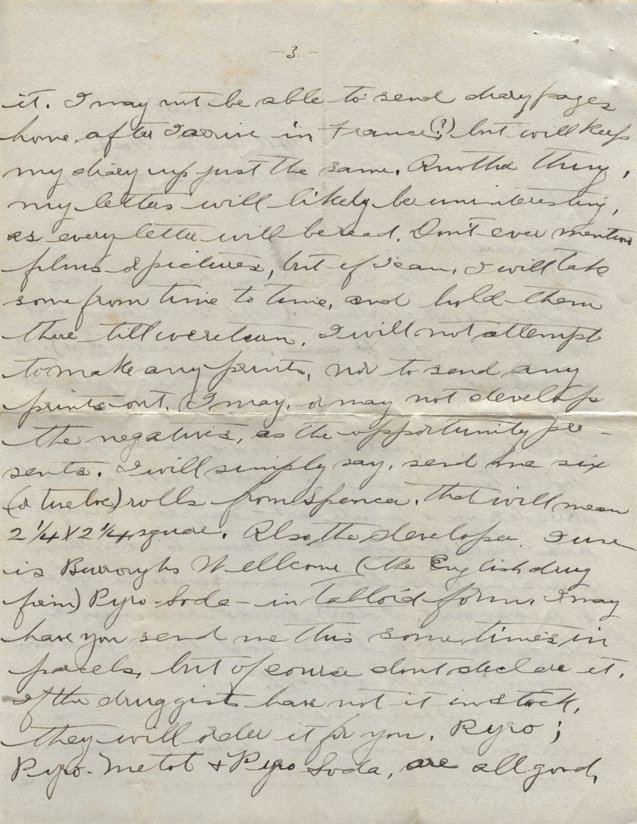 -3-
it. I may not be able to send diary pages
home, after I arrive in France(?) but will keep
my diary up just the same. Another thing,
my letters will likely be uninteresting,
as every letter will be read. Don't ever mention
films or pictures, but if I can, I will take
some from time to time, and hold them
there till we return. I will not attempt
to make any prints, nor to send any
prints out. I may, or may not develop
the negatives, as the opportunity pre-
sents. I will simply say, send me six
(or twelve) rolls from Spence. That will mean
2 1/4 X 2 1/4 square. Also the developer I use
is Burroughs Wellcome (the English drug
firm) Pyro-Soda - in Talloid form. I may
have you send me this some times in
parcels, but of course don't declare it.
If the druggists have not it in stock,
they will order it for you. Pyro;
Pyro-Metol & Pyro Soda, are all good,